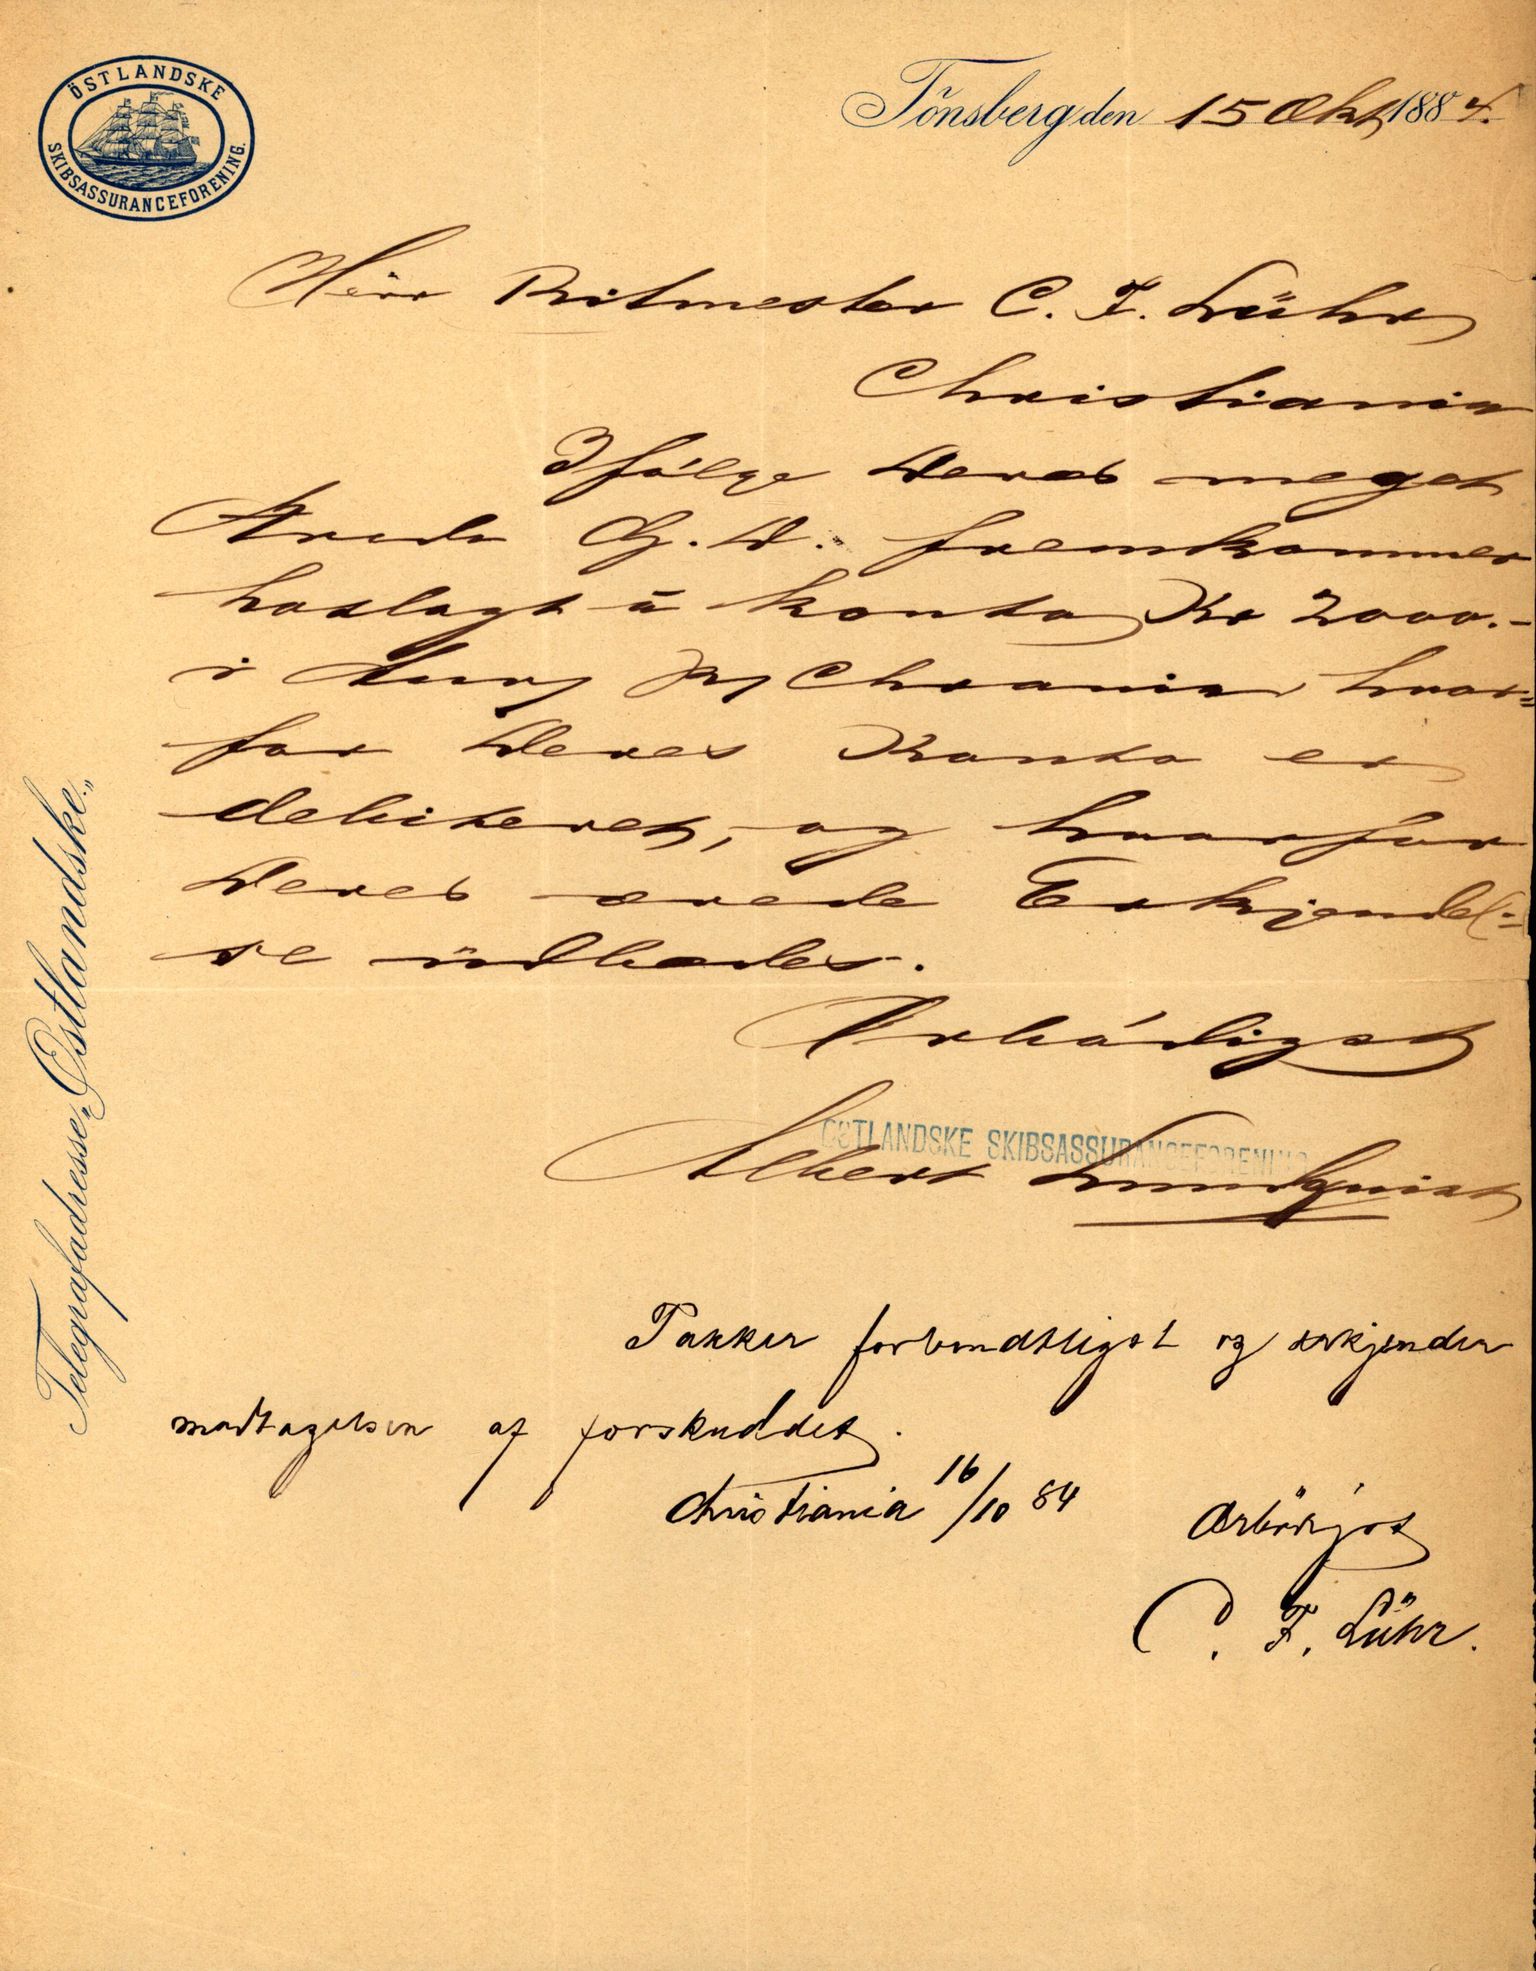 ÖSTLANDSKE
SKIBSASSURANCEFORENING.
Tönsberg den 15 Okt 1884.
Herr Ritmester C. F. Lühr
Christiania
Ifölge Deres meget
Ærede G. D. fremkommer
hoslagt á konto Kr 2000.-
i Anv p/ Chrania, hvor=
for Deres Konto er
debiteret, og hvorfor
Deres ærede Erkjendel=
se üdbedes.
Ærbödigst
ÖSTLANDSKE SKIBSASSURANCEFORENING
Albert Lundqvist
Takker forbindtligst og erkjender
modtagelsen af forskuddet.
Christiania 16/10 84
Ærbödigst
C. F. Lühr.
Telegrafadresse „Östlandske.„